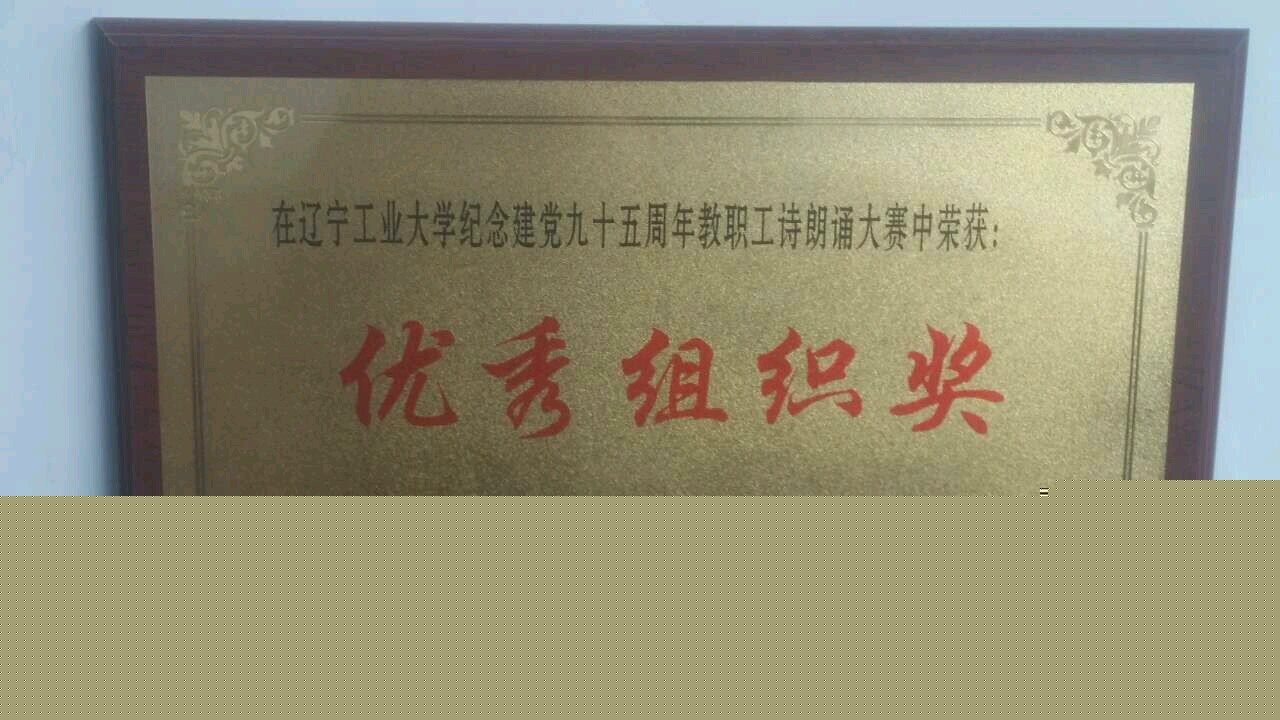 在辽宁工业大学纪念建党九十五周年教职工诗朗诵大赛中荣获:
优秀组织奖